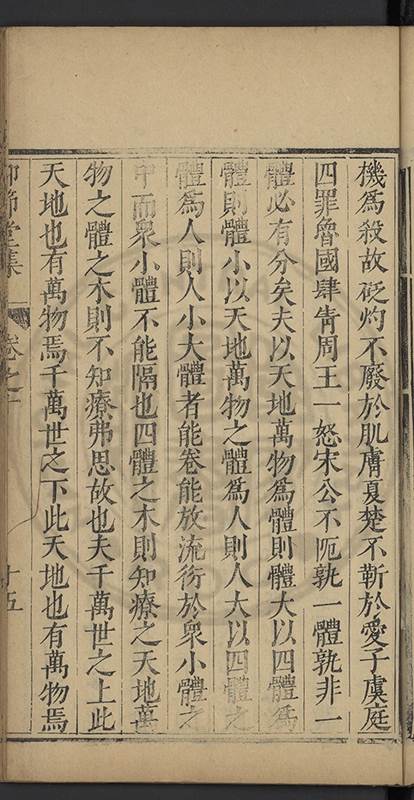 機爲殺故砭灼不廢於肌膚夏楚不靳於愛子虞庭
四罪魯國肆眚周王一怒宋公不阨孰一體孰非一
體必有分矣夫以天地萬物爲體則體大以四體爲
體則體小以天地萬物之體爲人則人大以四體之
體爲人則人小大體者能卷能放流衍於衆小體之
中而衆小體不能隔也四體之木則知療之天地萬
物之體之木則不知療弗思故也夫千萬世之上此
天地也有萬物焉千萬世之下此天地也有萬物焉
節堂集 卷之二 十五